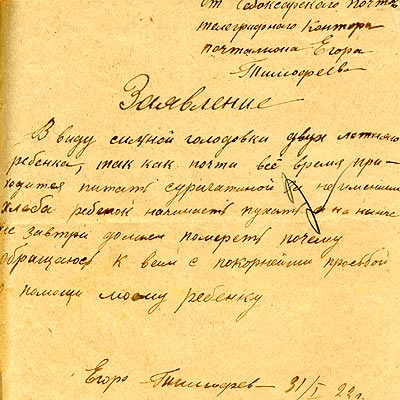 от Чебоксарского почт
телеграфного Контора
почталиона Егора
Тимофеева
Заявление
В виду сильной голодовки двух летняго
ребенка, так как почти всё время при-
ходится питать суррогатиной и неимением
хлеба ребенок начинает пухать и на ныне
не завтрй должен помереть почему
обращаюсь к вам с покорнейшей просьбой
о помощи моему ребенку
Егоръ Тимофеев 31/I 22 г.